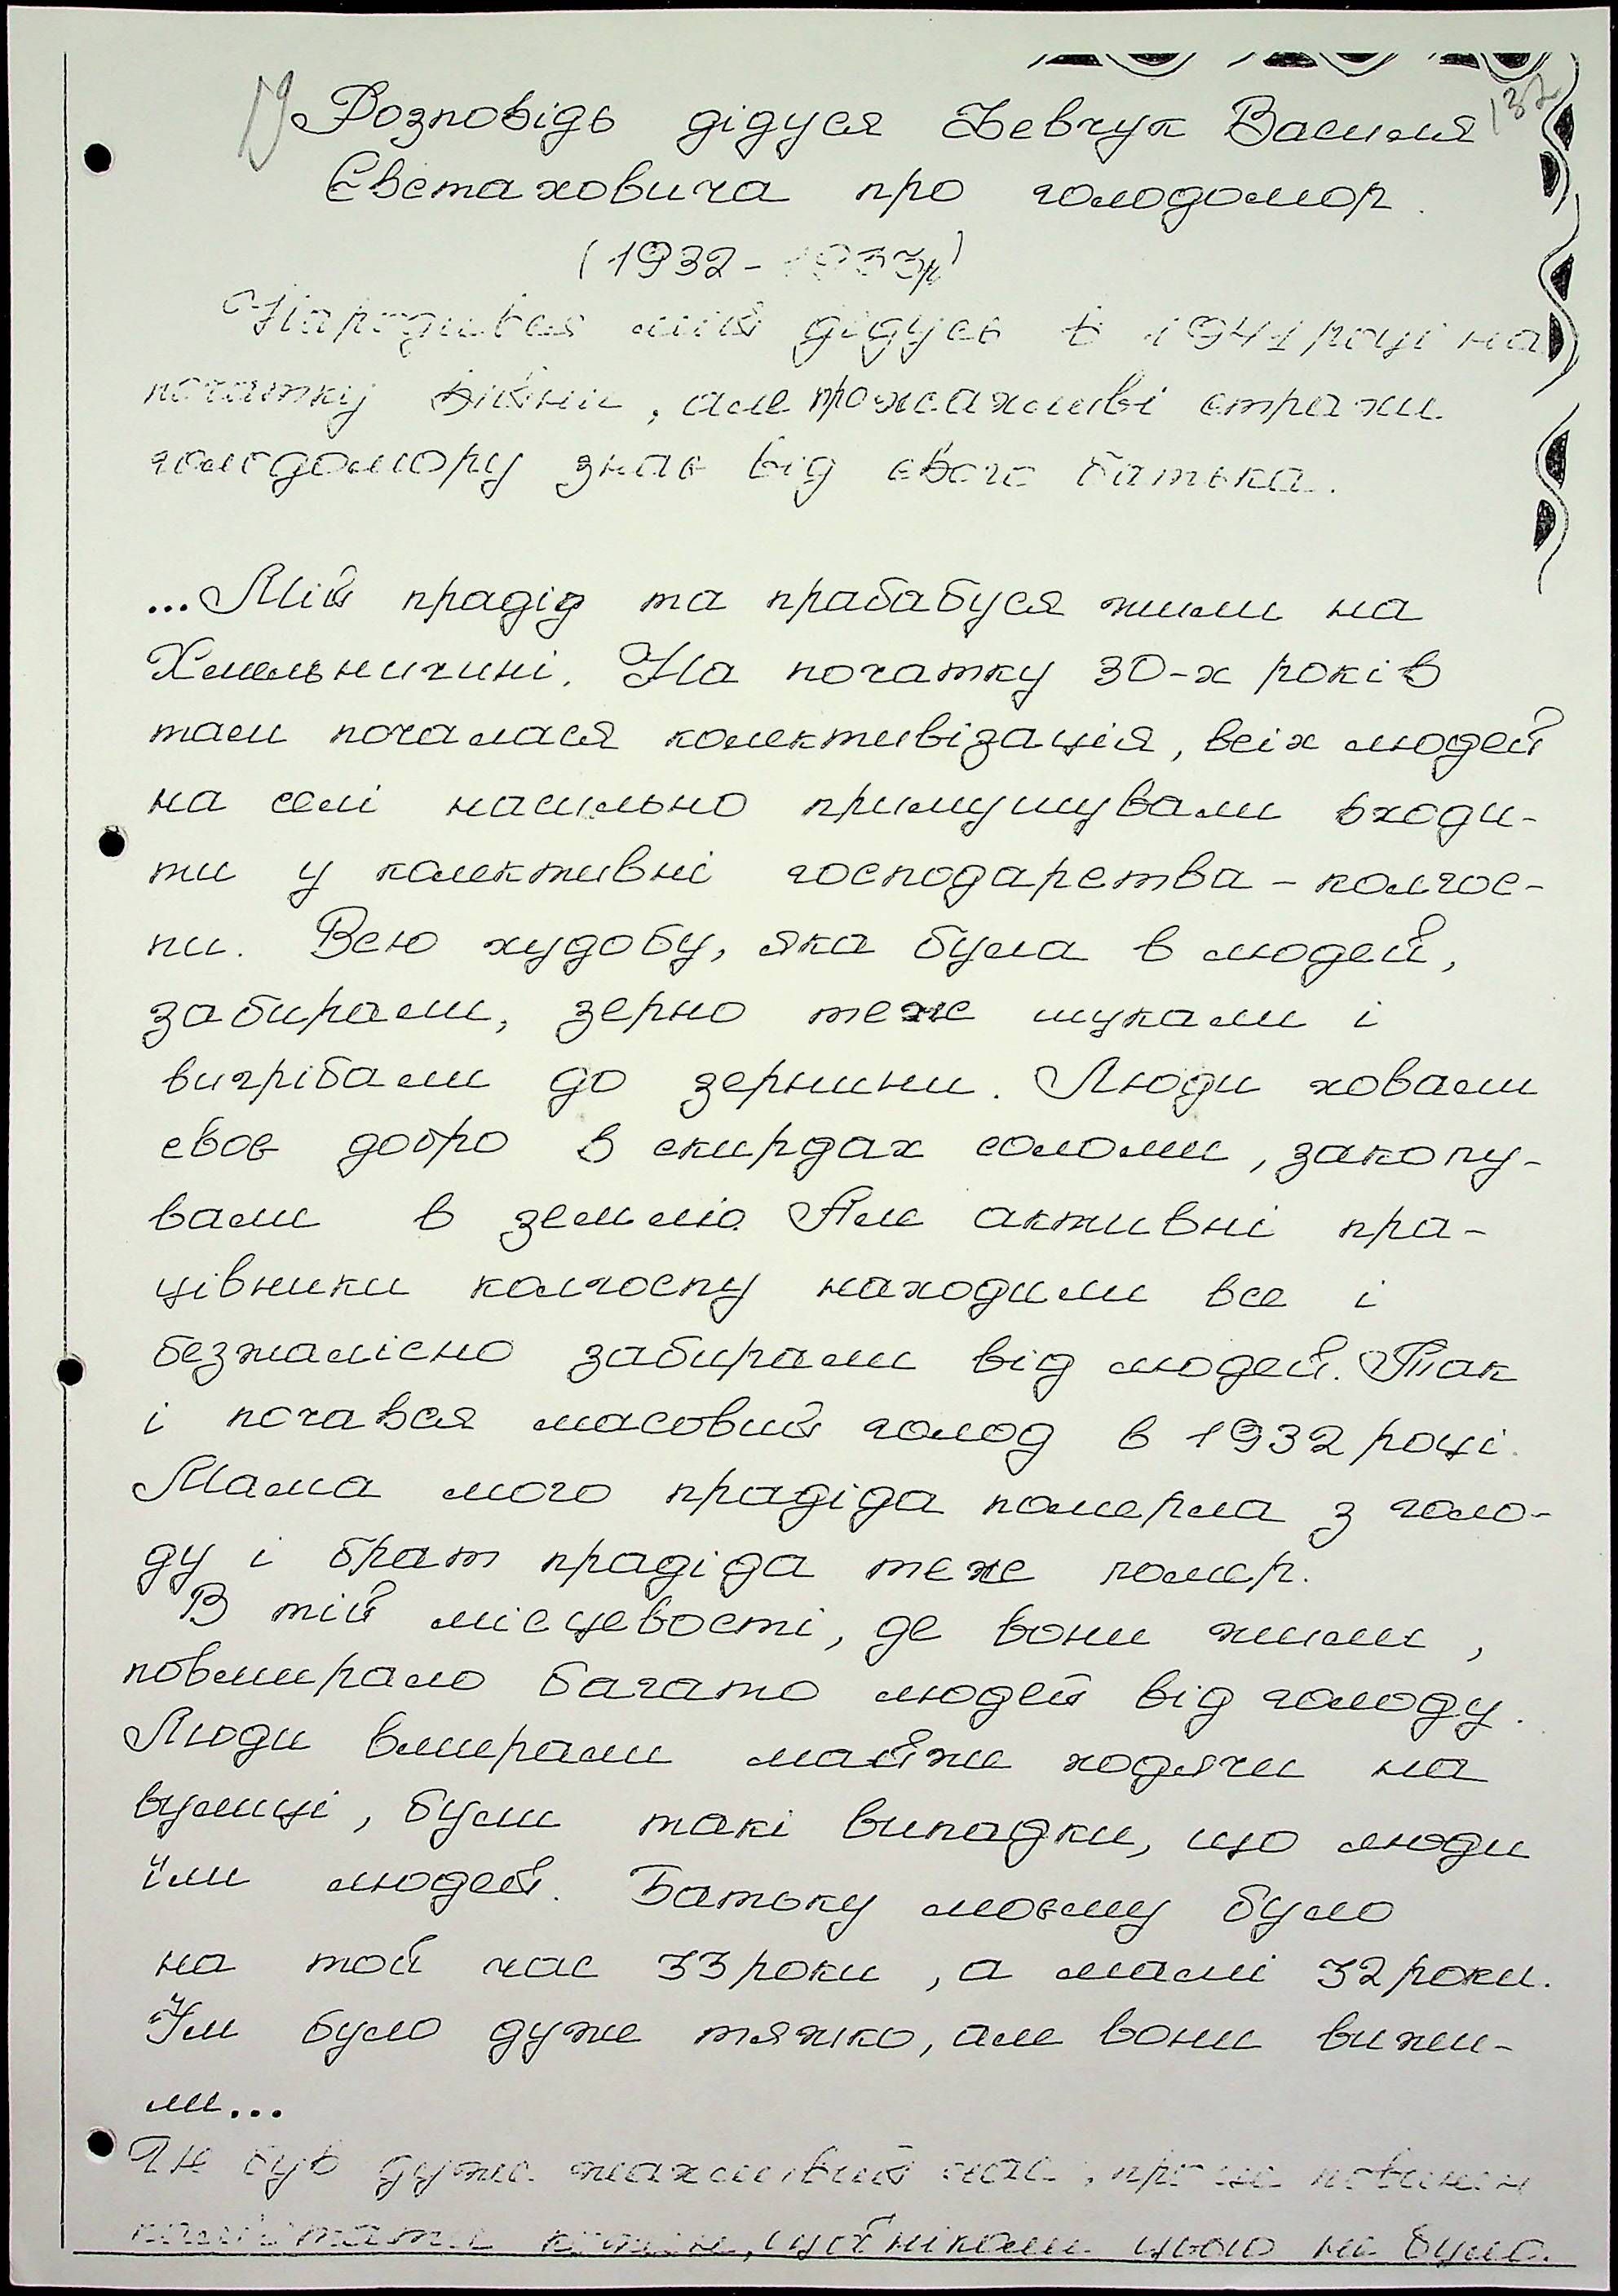 Розповідь дідуся Шевчук Василя 132
Євстаховича про голодомор.
(1932-1933р)
Народився мій дідусь в 1941 році на
початку війни, але про жахливі страхи
голодомору знав від свого батька.
...Мій прадід та прабабуся жили на
Хмельниччині. На початку 30-х років
там почалася колективізація, всіх людей
на селі насильно примушували входи-
ти у колективні господарства - колгос-
пи. Всю худобу, яка була в людей,
забирали, зерно теж шукали і
вигрібали до зернини. Люди ховали
своє добро в скирдах соломи, закопу-
вали в землю. Але активні пра-
цівники колгоспу находили все і
безжалісно забирали від людей. Так
і почався масовий голод в 1932 році.
Мама мого прадіда померла з голо-
ду і брат прадіда теж помер.
В тій місцевості, де вони жили,
повмирало багато людей від голоду.
Люди вмирали майже ходячи на
вулиці, були такі випадки, що люди
їли людей. Батьку моєму було
на той час 33 роки, а мамі 32 роки.
Їм було дуже тяжко, але вони вижи-
ли...
Це був дуже жахливий час, про це повинен
пам'ятати кожен, щоб ніколи цього не було.